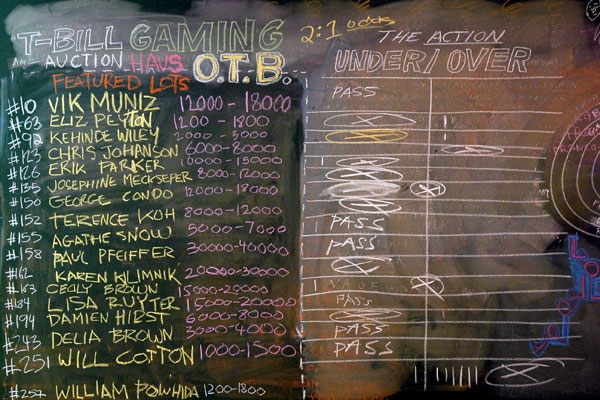 T-BILL GAMING
AND AUCTION HAUS O.T.B.
FEATURED LOTS
2:1 odds
THE ACTION
UNDER/OVER
#10 VIK MUNIZ 12000-18000 PASS
#63 ELIZ PEYTON 1200-1800
#92 KEHINDE WILEY 2000-3000
#123 CHRIS JOHANSON 6000-8000
#126 ERIK PARKER 10000-15000
#135 JOSEPHINE MECKSEPER 8000-12000
#150 GEORGE CONDO 12000-18000
#152 TERENCE KOH 8000-12000 PASS
#155 AGATHE SNOW 5000-7000 PASS
#158 PAUL PFEIFFER 30000-40000
#162 KAREN KILIMNIK 20000-30000
#163 CECILY BROWN 15000-20000
#184 LISA RUYTER 15000-20000 PASS
#194 DAMIEN HIRST 6000-8000
#243 DELIA BROWN 3000-4000 PASS
#251 WILL COTTON 1000-1500 PASS
#257 WILLIAM POWHIDA 1200-1800